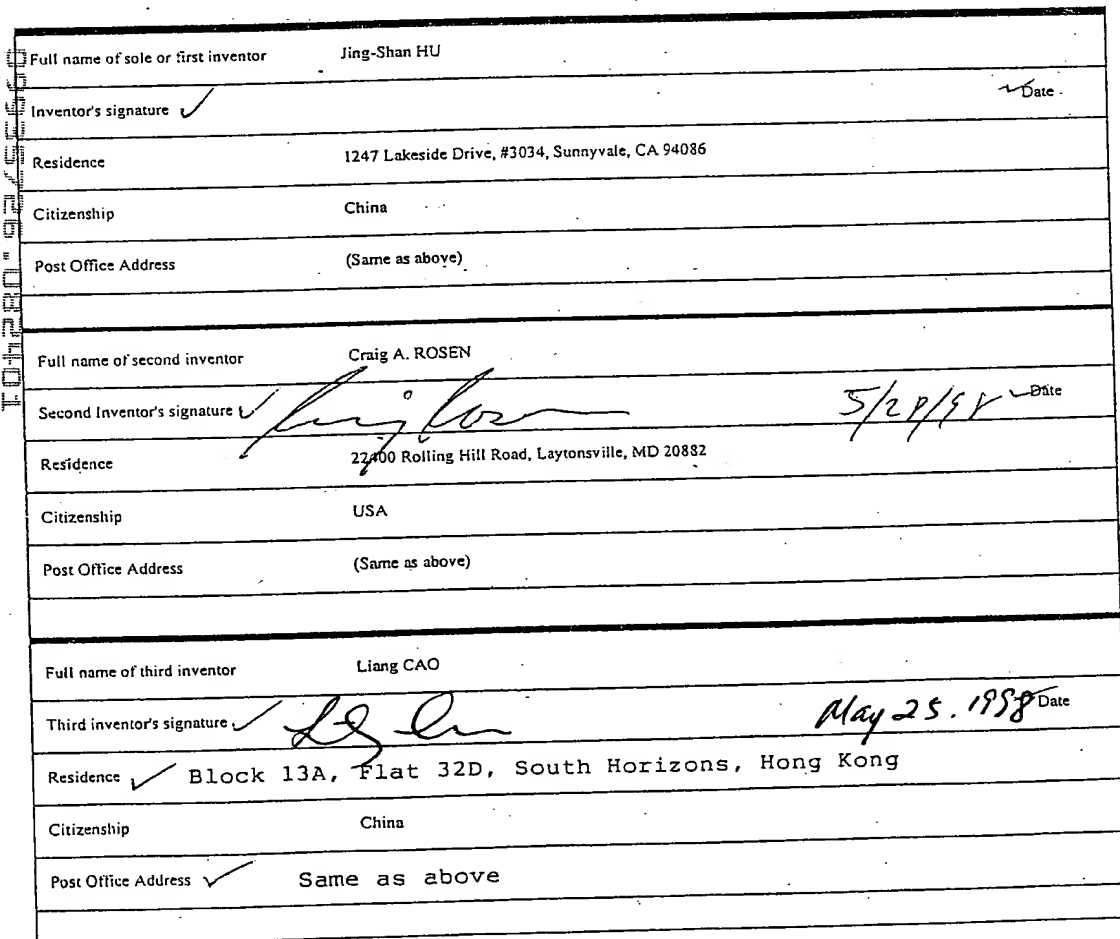 Full name of sole or first inventor Jing-Shan HU
Inventor's signature Date
Residence 1247 Lakeside Drive, #3034, Sunnyvale, CA 94086
Citizenship China
Post Office Address (Same as above)
Full name of second inventor Craig A. ROSEN
Second Inventor's signature 5/28/98 Date
Residence 22400 Rolling Hill Road, Laytonsville, MD 20882
Citizenship USA
Post Office Address (Same as above)
Full name of third inventor Liang CAO
Third inventor's signature May 25. 1998 Date
Residence Block 13A, Flat 32D, South Horizons, Hong Kong
Citizenship China
Post Office Address Same as above